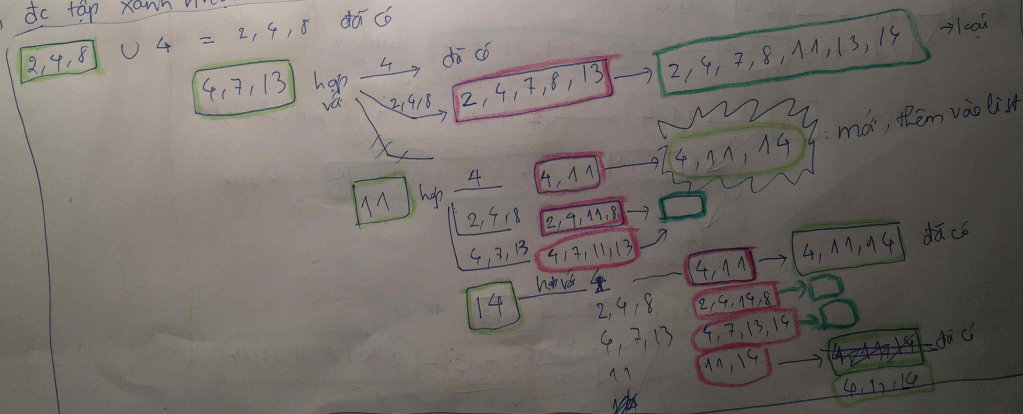 đc tập xanh
2,4,8 ∪ 4 = 2,4,8 đã có
4,7,13 hợp với 4 → đã có
2,4,8 → 2,4,7,8,13 → 2,4,7,8,11,13,14 → loại
11 hợp 4 4,11 → 4,11,14 : mới, thêm vào list
2,4,8 2,4,11,8 →
4,7,13 4,7,11,13 →
14 hợp với 4 4,11 → 4,11,14 đã có
2,4,8 2,4,14,8 →
4,7,13 4,7,13,14 →
11 11,14 → đã có
4,11,14